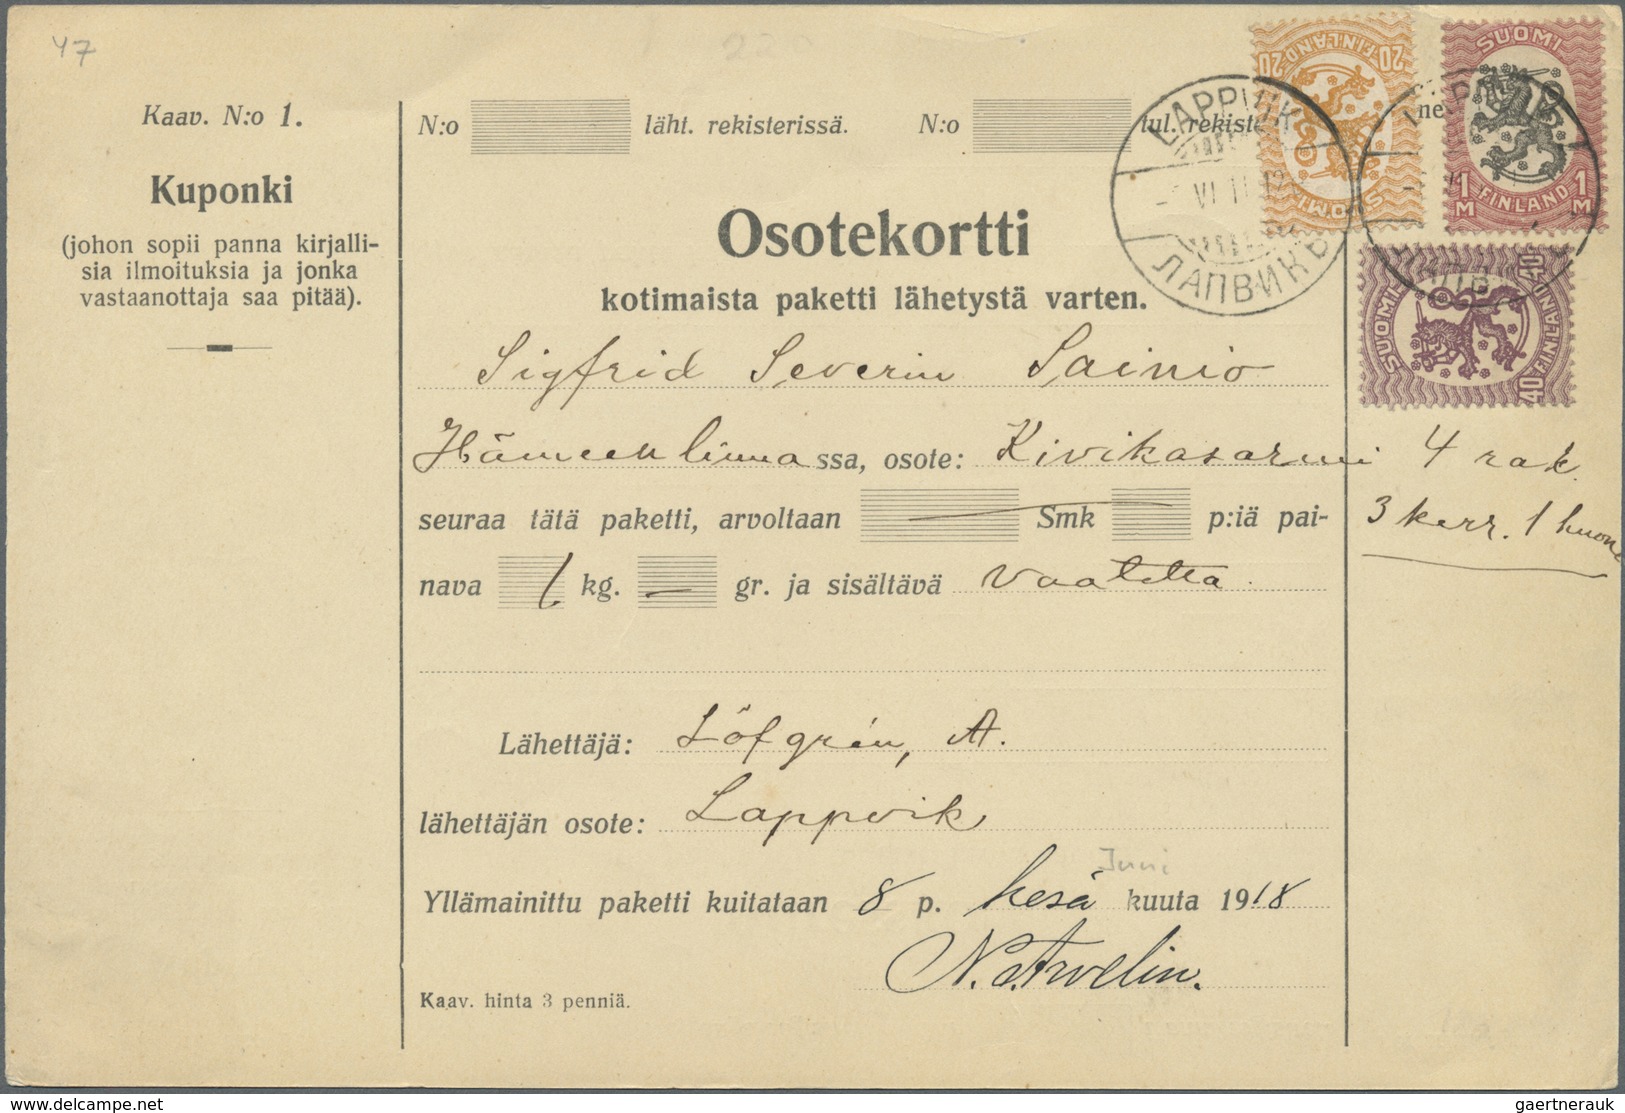 47
Kaav. N:o 1.
Kuponki
(johon sopii panna kirjalli-
sia ilmoituksia ja jonka
vastaanottaja saa pitää).
N:o läht. rekisterissä. N:o tul. rekiste
ne
LAPPVIK
VI
ЛАПВИКЪ
20 FINLAND 20
SUOMI
SUOMI
1 M FINLAND 1 M
SUOMI 40
40 FINLAND
Osotekortti
kotimaista paketti lähetystä varten.
Sigfrid Severin Sainio
Hämeenlinnassa, osote: Kivikasarmi 4 rak.
3 kerr. 1 huone
seuraa tätä paketti, arvoltaan — Smk p:iä pai-
nava 1 kg. — gr. ja sisältävä vaatetta
Lähettäjä: Löfgrén, A.
lähettäjän osote: Lappvik
Juni
Yllämainittu paketti kuitataan 8 p. kesä kuuta 1918
N. Arvelin.
Kaav. hinta 3 penniä.
www.delcampe.net
gaertnerauk